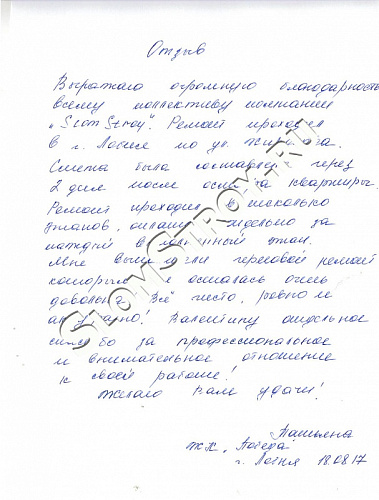 Отзыв
Выражаю огромную благодарность
всему коллективу компании
„SlomStroy". Ремонт проходил
в г. Лобня по ул.
Смета была составлена через
2 дня после осмотра квартиры.
Ремонт проходил в несколько
этапов, оплата отдельно за
каждый выполненный этап.
Мне выполняли черновой ремонт
которым я осталась очень
довольна. Всё чисто, ровно и
аккуратно! Валентину отдельное
спасибо за профессиональное
и внимательное отношение
к своей работе!
Желаю Вам удачи!
Татьяна
ЖК „Победа
г. Лобня 18.08.17
SLOMSTROM.RU